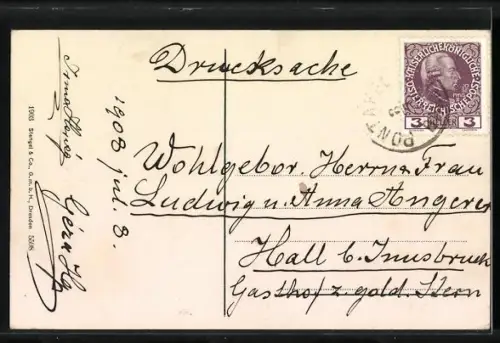 Drucksache
1908 jul. 8.
Wohlgebor. Herrn u. Frau
Ludwig u. Anna Angerer
Hall b. Innsbruck
Gasthof z. gold. Stern
KAISERLICHE KÖNIGLICHE
ÖSTERREICHISCHE POST
3 HELLER 3
1903 Stengel & Co., G.m.b.H., Dresden